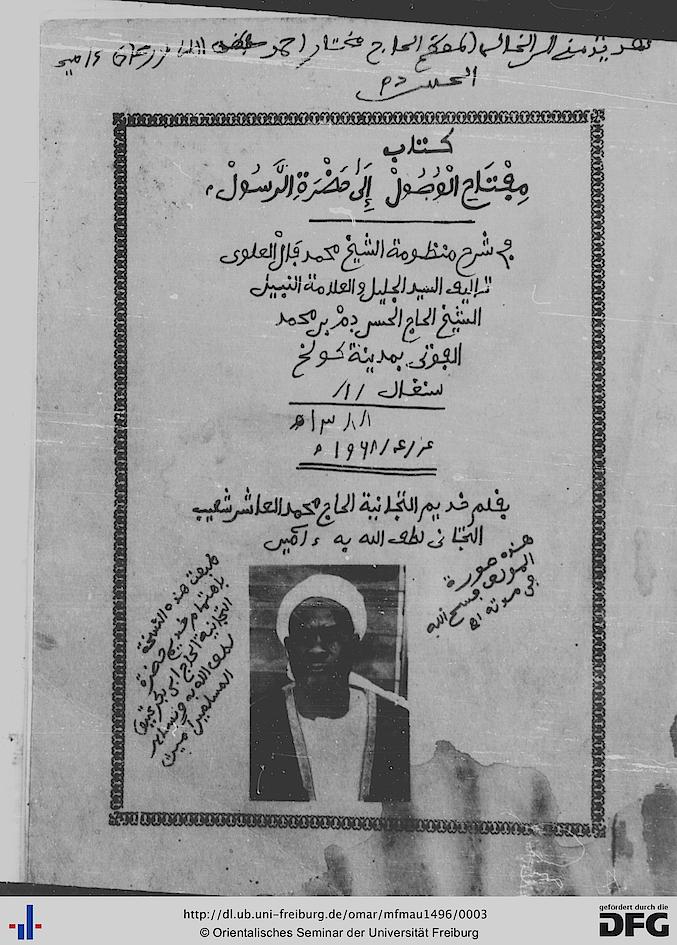 هدية من إلى الخال المفتح الحاج مختار احمد
كتاب
مِفْتَاحِ الْوُصُولْ إِلَى حَضْرَةِ الرَّسُولْ،
في شرح منظومة الشيخ محمد فال العلوى
تأليف السيد الجليل والعلامة النبيل
الشيخ الحاج الحسن دمْ بن محمد
الفوتي بمدينة كولخ
سنغال /١/
١٣٨٨ه
١٩٦٨/٤/٤ ه
بقلم خديم التجانية الحاج محمد العاشر شعيب
التجاني لطف الله به ءامين
هذه صورة
المؤلف فسح الله
في مدته
طبعت هذه النسخة
بإهتمام خديم حضرة
التجانية الحاج ابى بكر عتيق
لطف الله به وبسائر
المسلمين آمين
http://dl.ub.uni-freiburg.de/omar/mfmau1496/0003
© Orientalisches Seminar der Universität Freiburg
gefördert durch die
DFG